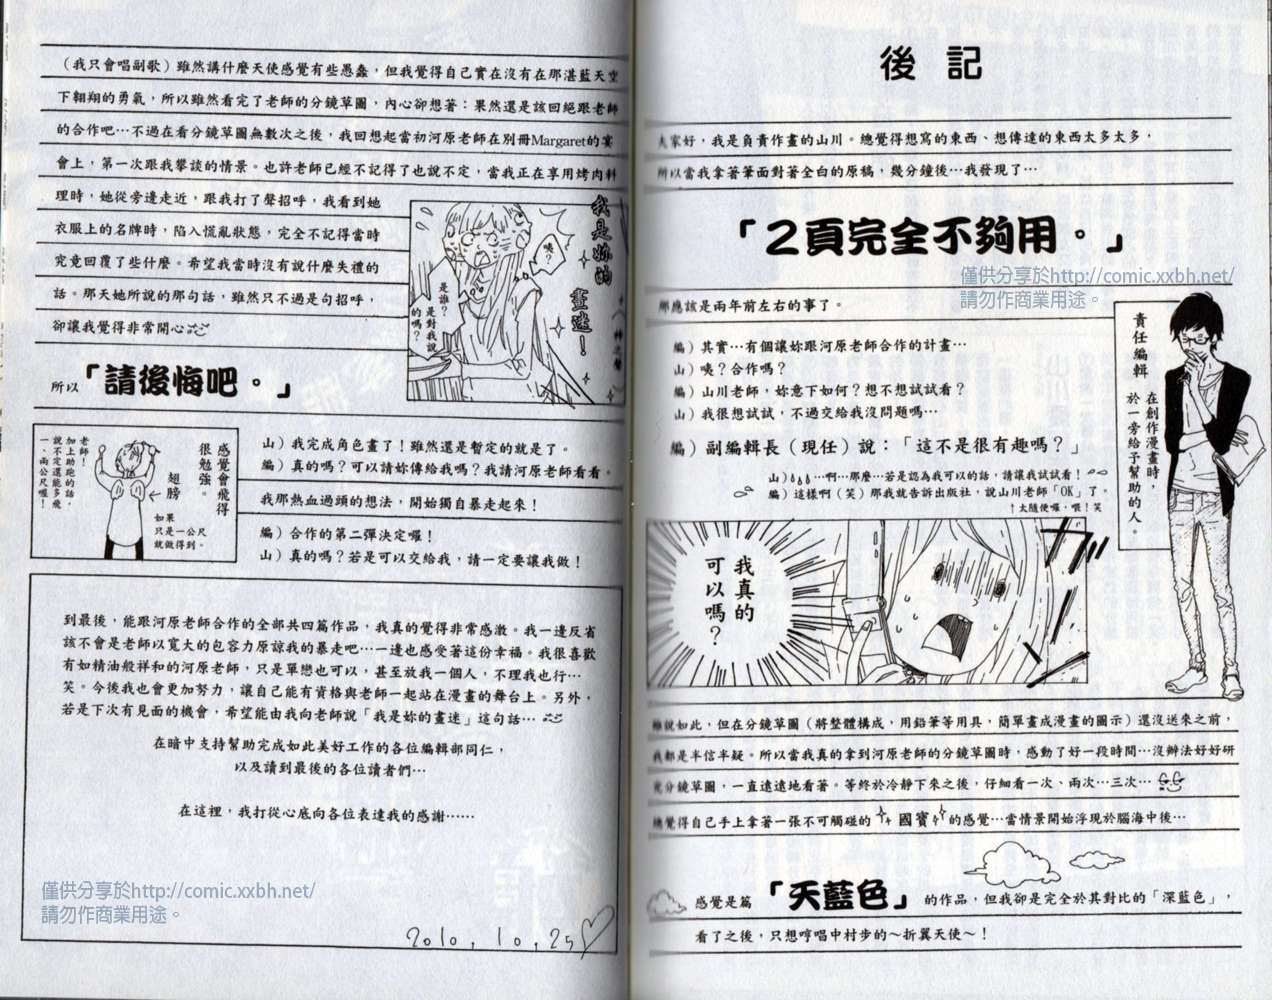 後記
大家好，我是負責作畫的山川。總覺得想寫的東西、想傳達的東西太多太多，
所以當我拿著筆面對著全白的原稿，幾分鐘後…我發現了…
「2頁完全不夠用。」
僅供分享於http://comic.xxbh.net/
請勿作商業用途。
那應該是兩年前左右的事了。
編）其實…有個讓妳跟河原老師合作的計畫…
山）咦？合作嗎？
編）山川老師，妳意下如何？想不想試試看？
山）我很想試試，不過交給我沒問題嗎…
編）副編輯長（現任）說：「這不是很有趣嗎？」
山）…啊…那麼…若是認為我可以的話，請讓我試試看！
編）這樣啊（笑）那我就告訴出版社，說山川老師「OK」了。
↑太隨便囉，喂！笑
責任編輯
在創作漫畫時，
於一旁給予幫助的人。
ガッ
我真的
可以嗎？
雖說如此，但在分鏡草圖（將整體構成，用鉛筆等用具，簡單畫成漫畫的圖示）還沒送來之前，
我都是半信半疑。所以當我真的拿到河原老師的分鏡草圖時，感動了好一段時間…沒辦法好好研
究分鏡草圖，一直遠遠地看著。等終於冷靜下來之後，仔細看一次、兩次…三次…
總覺得自己手上拿著一張不可觸碰的國寶的感覺…當情景開始浮現於腦海中後…
感覺是篇「天藍色」的作品，但我卻是完全於其對比的「深藍色」，
看了之後，只想哼唱中村步的～折翼天使～！
（我只會唱副歌）雖然講什麼天使感覺有些愚蠢，但我覺得自己實在沒有在那湛藍天空
下翱翔的勇氣，所以雖然看完了老師的分鏡草圖，內心卻想著：果然還是該回絕跟老師
的合作吧…不過在看分鏡草圖無數次之後，我回想起當初河原老師在別冊Margaret的宴
會上，第一次跟我攀談的情景。也許老師已經不記得了也說不定，當我正在享用烤肉料
理時，她從旁邊走近，跟我打了聲招呼，我看到她
衣服上的名牌時，陷入慌亂狀態，完全不記得當時
究竟回覆了些什麼。希望我當時沒有說什麼失禮的
話。那天她所說的那句話，雖然只不過是句招呼，
卻讓我覺得非常開心
我是妳的
畫迷！
咦？
是誰？
是對我說
的嗎？
所以「請後悔吧。」
感覺會飛得
很勉強。
翅膀
如果
只是一公尺
就做得到。
老師！
加上助跑的話
說不定還能多飛
一、兩公尺喔！
山）我完成角色畫了！雖然還是暫定的就是了。
編）真的嗎？可以請妳傳給我嗎？我請河原老師看看。
我那熱血過頭的想法，開始獨自暴走起來！
編）合作的第二彈決定囉！
山）真的嗎？若是可以交給我，請一定要讓我做！
到最後，能跟河原老師合作的全部共四篇作品，我真的覺得非常感激。我一邊反省
該不會是老師以寬大的包容力原諒我的暴走吧…一邊也感受著這份幸福。我很喜歡
有如精油般祥和的河原老師，只是單戀也可以，甚至放我一個人，不理我也行…
笑。今後我也會更加努力，讓自己能有資格與老師一起站在漫畫的舞台上。另外，
若是下次有見面的機會，希望能由我向老師說「我是妳的畫迷」這句話…
在暗中支持幫助完成如此美好工作的各位編輯部同仁，
以及讀到最後的各位讀者們…
在這裡，我打從心底向各位表達我的感謝……
僅供分享於http://comic.xxbh.net/
請勿作商業用途。
2010.10.25